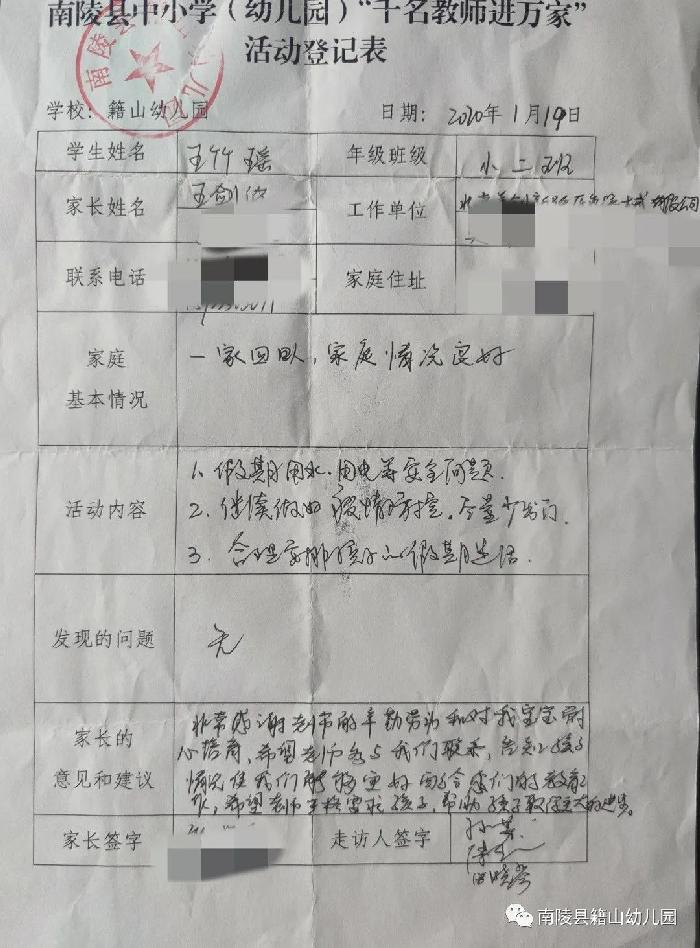 南陵县中小学（幼儿园）“千名教师进万家”
活动登记表
学校：籍山幼儿园 日期：2020年1月19日
学生姓名 王竹瑶 年级班级 小二班
家长姓名 王剑 工作单位 有限公司
联系电话 家庭住址
家庭
基本情况
一家四口，家庭情况良好
活动内容
1、假期用水、用电等安全问题.
2、继续做好疫情防控，尽量少出门.
3、合理安排孩子的假期生活.
发现的问题 无
家长的
意见和建议
非常感谢老师的辛勤劳动和对我宝宝耐
心培育，希望老师多与我们联系，告知孩子
情况使我们能够更好配合您们的教育工
作，希望老师严格要求孩子，帮助孩子取得更大的进步。
家长签字 走访人签字
南陵县籍山幼儿园